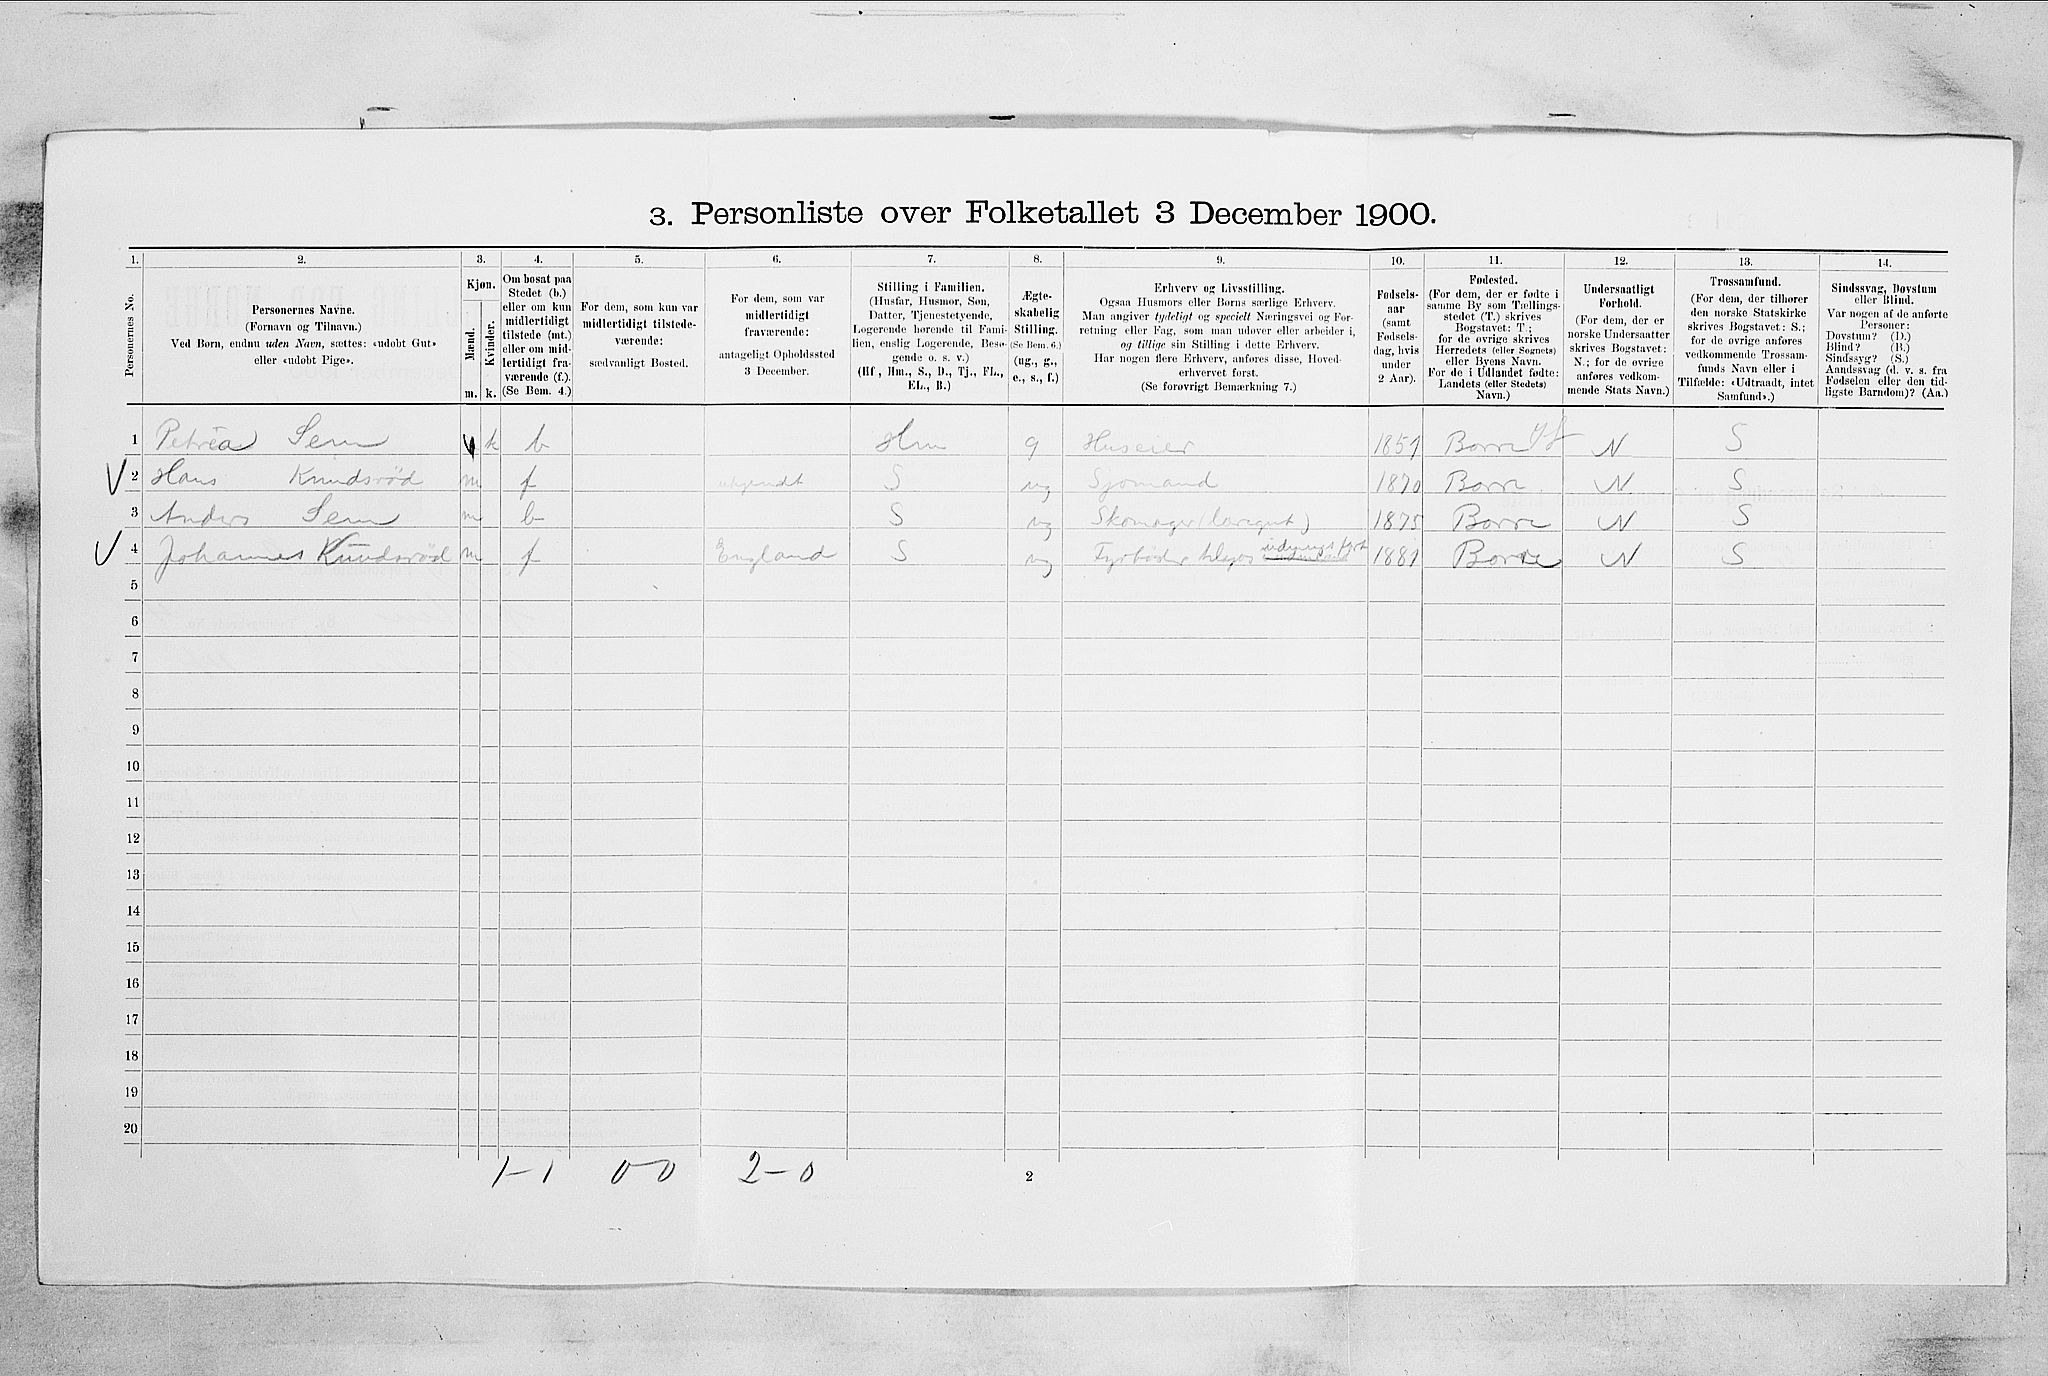 3. Personliste over Folketallet 3 December 1900.
1. 2. 3. 4. 5. 6. 7. 8. 9. 10. 11. 12. 13. 14.
Personernes No.
Personernes Navne.
(Fornavn og Tilnavn.)
Ved Børn, endnu uden Navn, sættes: «udøbt Gut»
eller «udøbt Pige».
Kjøn.
Mænd.
Kvinder.
m. k.
Om bosat paa
Stedet (b.)
eller om kun
midlertidigt
tilstede (mt.)
eller om mid-
lertidigt fra-
værende (f.).
(Se Bem. 4.)
For dem, som kun var
midlertidigt tilstede-
værende:
sædvanligt Bosted.
For dem, som var
midlertidigt
fraværende:
antageligt Opholdssted
3 December.
Stilling i Familien.
(Husfar, Husmor, Søn,
Datter, Tjenestetyende,
Logerende hørende til Fami-
lien, enslig Logerende, Besø-
gende o. s. v.)
(Hf, Hm., S., D., Tj., FL.,
EL., B.)
Ægte-
skabelig
Stilling.
(Se Bem. 6.)
(ug., g.,
e., s., f.)
Erhverv og Livsstilling.
Ogsaa Husmors eller Børns særlige Erhverv.
Man angiver tydeligt og specielt Næringsvei og For-
retning eller Fag, som man udøver eller arbeider i,
og tillige sin Stilling i dette Erhverv.
Har nogen flere Erhverv, anføres disse, Hoved-
erhvervet først.
(Se forøvrigt Bemærkning 7.)
Fødsels-
aar
(samt
Fødsels-
dag, hvis
under
2 Aar).
Fødested.
(For dem, der er fødte i
samme By som Tællings-
stedet (T.) skrives
Bogstavet: T.;
for de øvrige skrives
Herredets (eller Sognets)
eller Byens Navn.
For de i Udlandet fødte:
Landets (eller Stedets)
Navn.)
Undersaatligt
Forhold.
(For dem, der er
norske Undersaatter
skrives Bogstavet:
N.; for de øvrige
anføres vedkom-
mende Stats Navn.)
Trossamfund.
(For dem, der tilhører
den norske Statskirke
skrives Bogstavet: S.;
for de øvrige anføres
vedkommende Trossam-
funds Navn eller i
Tilfælde: «Udtraadt, intet
Samfund».)
Sindssvag, Døvstum
eller Blind.
Var nogen af de anførte
Personer:
Døvstum? (D.)
Blind? (B.)
Sindssyg? (S.)
Aandssvag (d. v. s. fra
Fødselen eller den tid-
ligste Barndom)? (Aa.)
1 Petrea Sem k b Hm g Huseier 1851 Borre N S
2 Hans Knudsrød m f ubkjendt S ug Sjømand 1870 Borre N S
3 Anders Sem m b S ug Skomager (læregut) 1875 Borre N S
4 Johannes Knudsrød m f England S ug Fyrbøder 1881 Borre N S
5
6
7
8
9
10
11
12
13
14
15
16
17
18
19
20
1-1 0-0 2-0
2